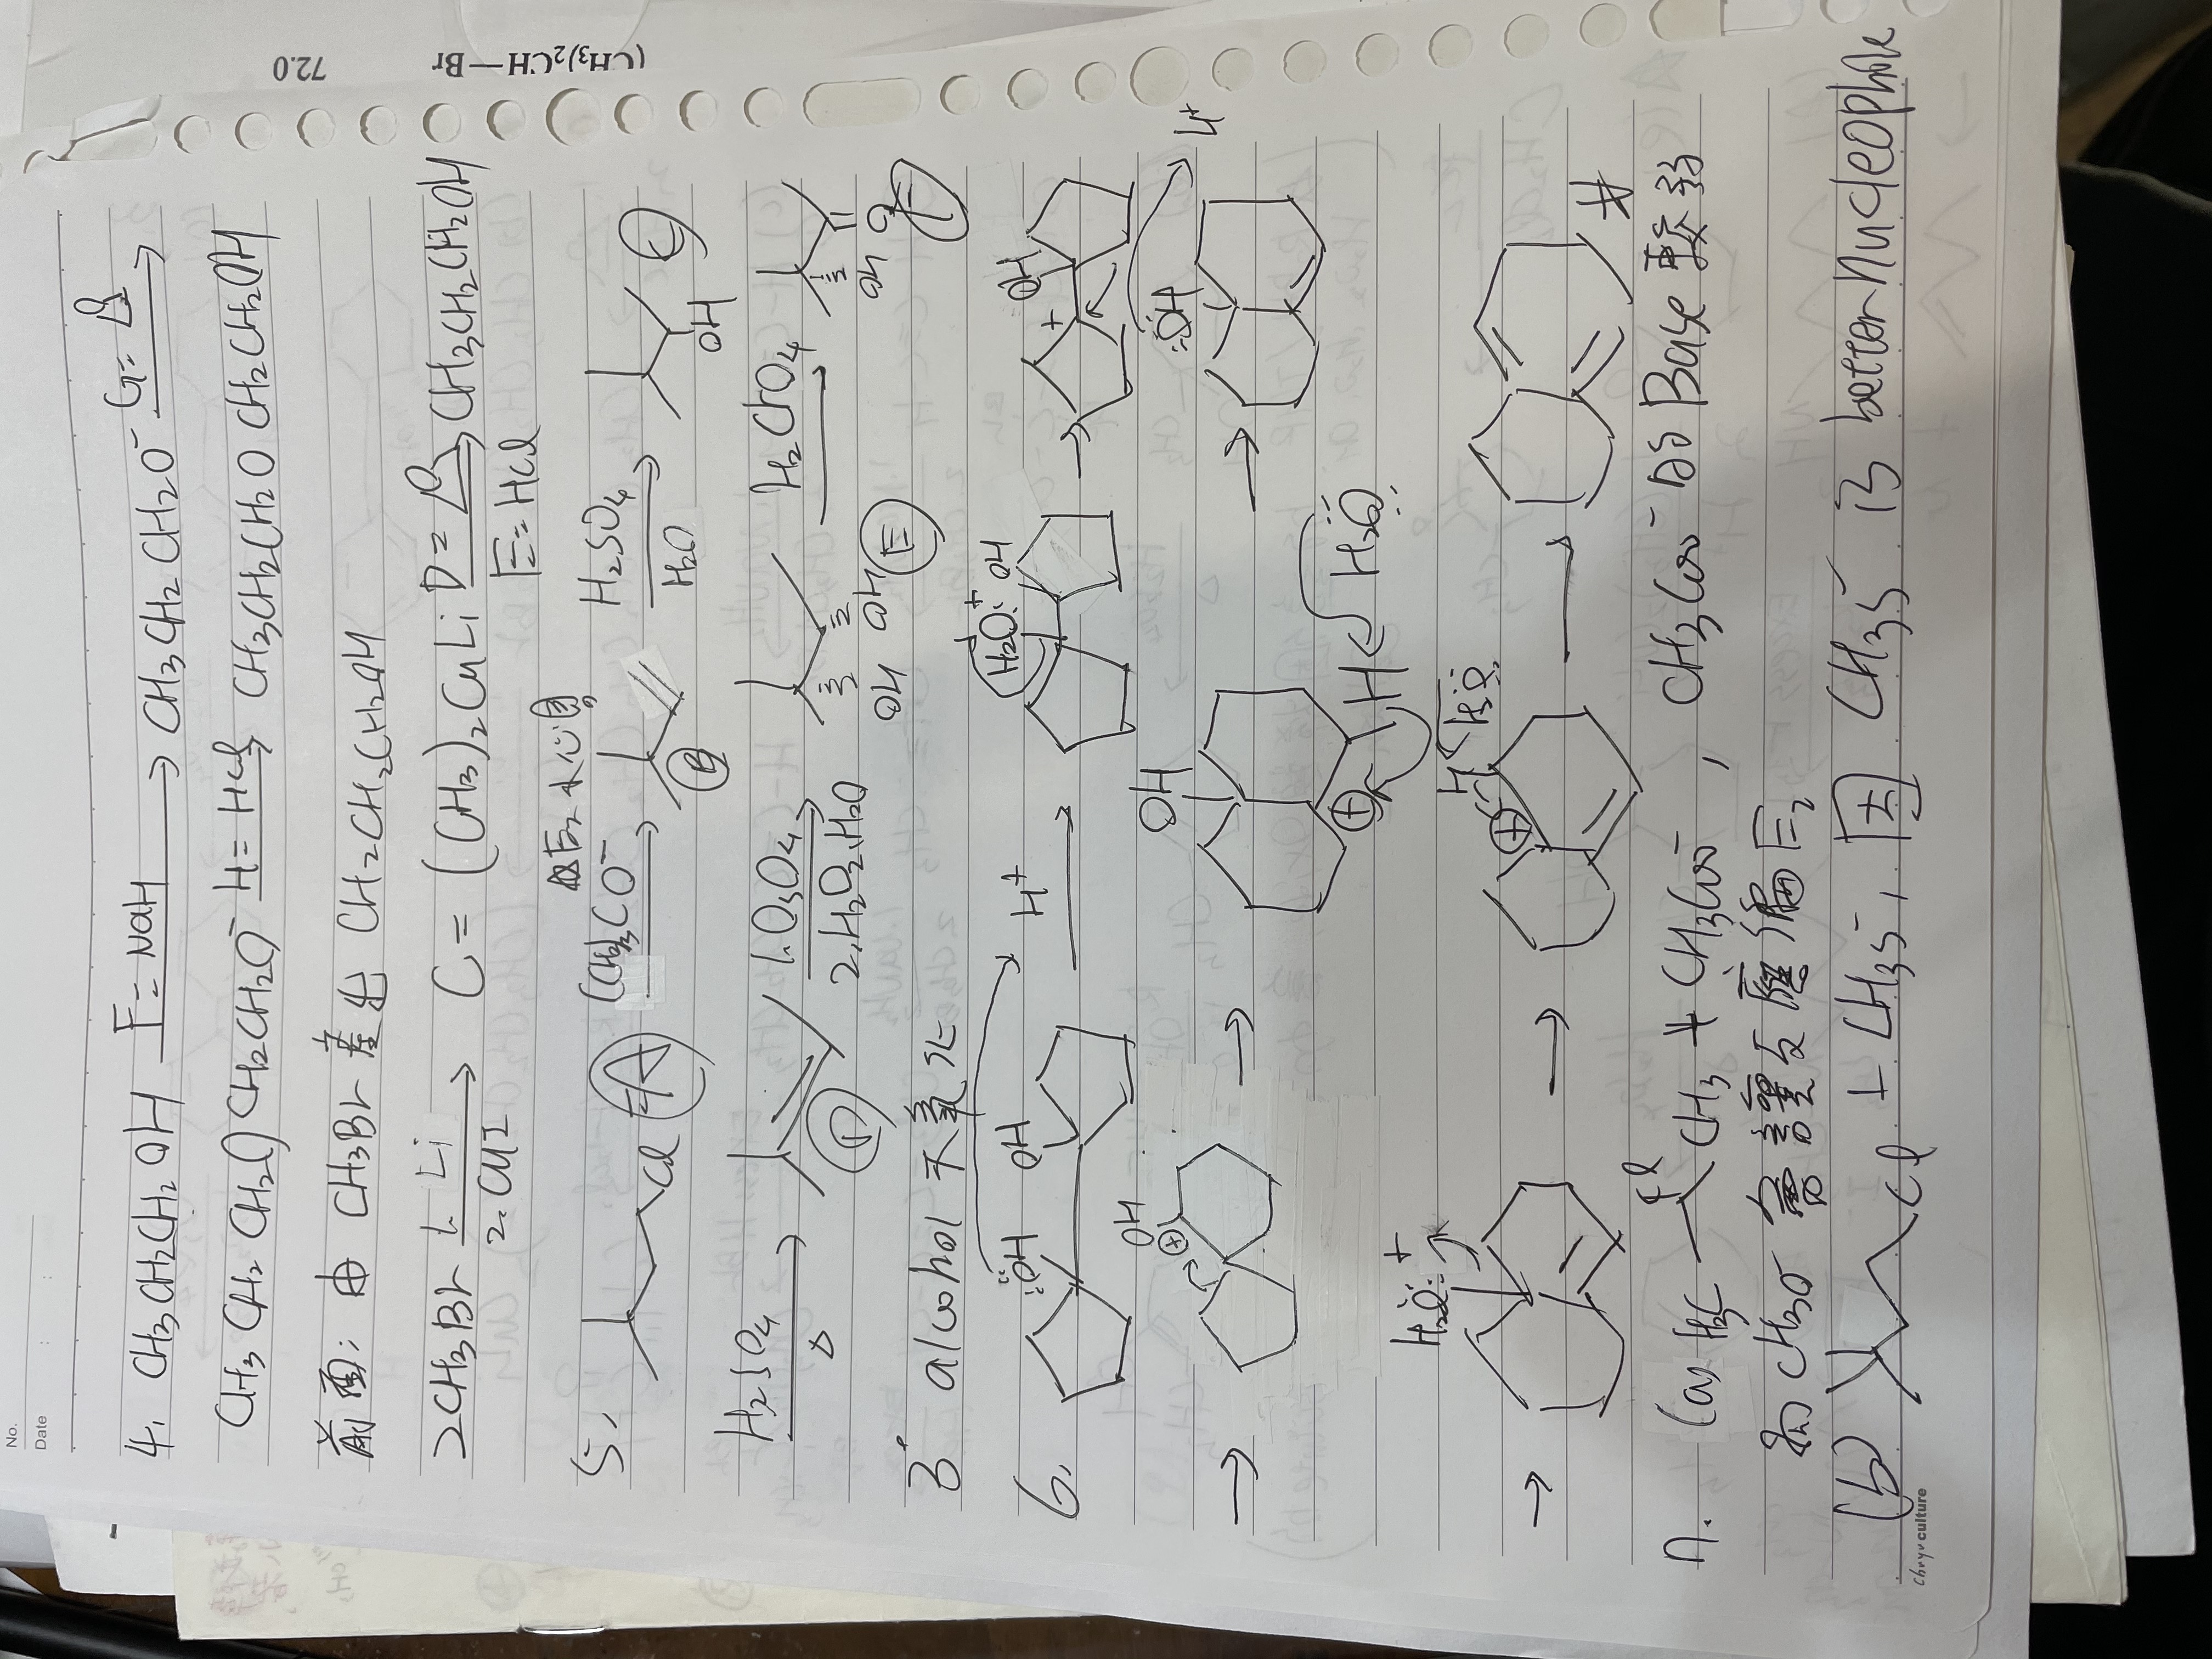 No.
Date : :
4. CH3CH2CH2OH F= NaH CH3CH2CH2O⁻ G=
CH3CH2CH2OCH2CH2O⁻ H= HCl CH3CH2CH2OCH2CH2OH
前面: 由 CH3Br 產出 CH2CH2CH2OH
2CH3Br 1. Li 2. CuI C= (CH3)2CuLi D= O E= HCl CH3CH2CH2OH
E2
5. Cl A (CH3)3CO⁻ B H2SO4 H2O OH C
H2SO4 Δ D 1. OsO4 2. H2O2, H2O OH OH E H2CrO4 OH O F
3° alcohol 不氧化
6. :ÖH OH H⁺ H2O:⁺ OH + OH
OH ⊕ OH ⊕ H H2O :ÖH H⁺
H2Ö:⁺ ⊕ H H2Ö #
7. (a) H3C Cl CH3 + CH3COO⁻ , CH3COO⁻ 的 Base 較弱
而 CH3O⁻ 會讓反應偏 E2
(b) Cl + CH3S⁻, 因 CH3S⁻ is better nucleophile
culture
72.0
(CH3)2CH—Br